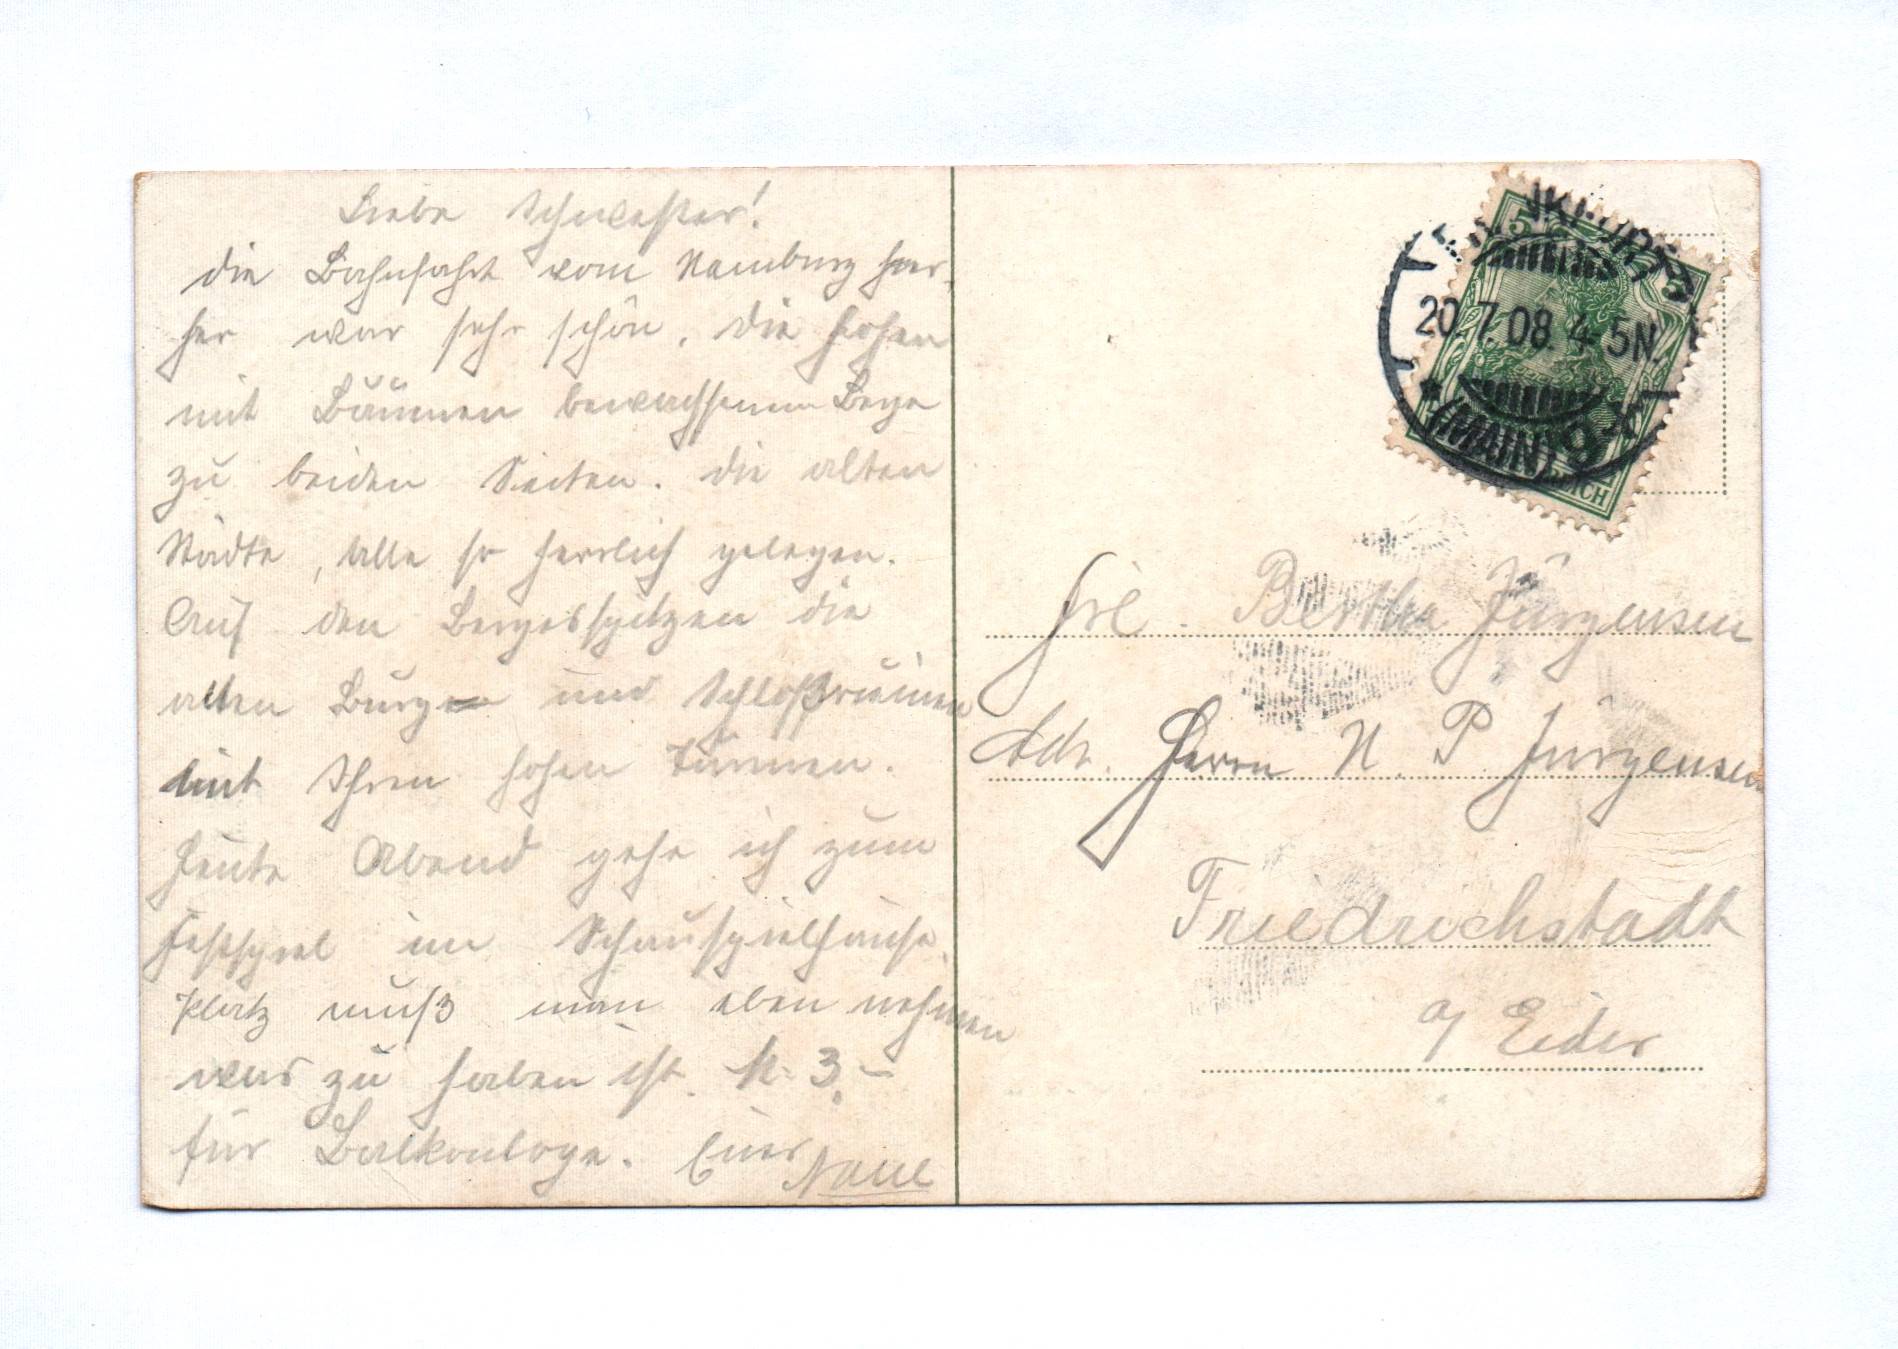 Liebe Schwester!
die Bahnfahrt vom Naumburg hier
her war sehr schön. Die hohen
mit Bäumen bewachsenen Berge
zu beiden Seiten. Die alten
Städte, alle so herrlich gelegen.
Auf den Bergesspitzen die
alten Burgen und Schloßruinen
mit Ihren hohen Türmen.
Heute Abend gehe ich zum
Festspiel im Schauspielhause.
Platz muß man eben nehmen
was zu haben ist. M. 3.-
für Balkonloge. Euer
20.7.08 4-5N.
(MAIN) 9
5
5
Frl. Bertha Jürgensen
Adr. Herrn N. P. Jürgensen
Friedrichstadt
a/ Eider